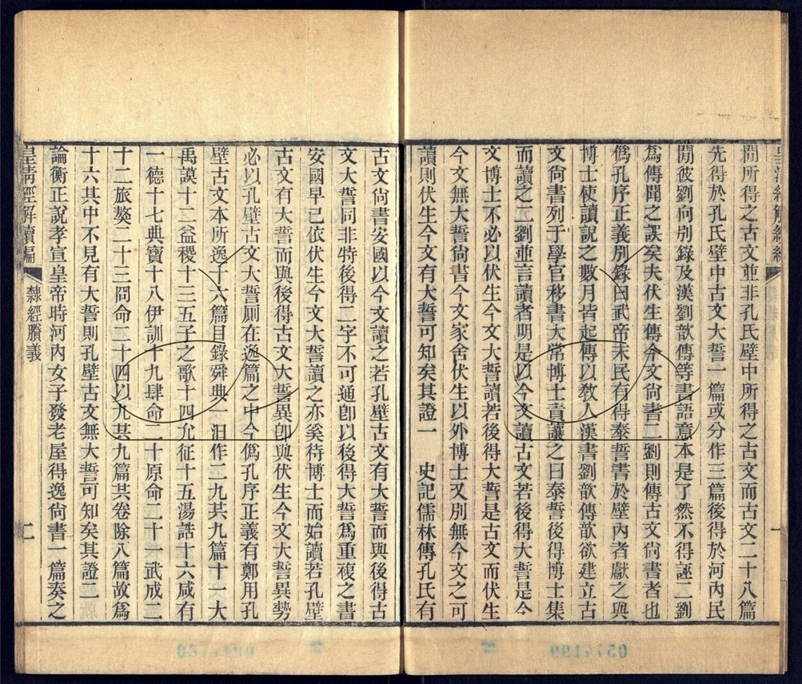 間所得之古文並非孔氏壁中所得之古文而古文二十八篇
先得於孔氏壁中古文大誓一篇或分作三篇後得於河內民
間彼劉向別錄及漢劉歆傳等書語意本是了然不得誣二劉
為傳聞之誤矣夫伏生傳今文尚書二劉則傳古文尚書者也
偽孔序正義別錄曰武帝末民有得泰誓書於壁內者獻之與
博士使讀說之數月皆起傳以教人漢書劉歆傳歆欲建立古
文尚書列于學官移書大常博士責讓之曰泰誓後得博士集
而讀之二劉並言讀者明是以今文讀古文若後得大誓是今
文博士不必以伏生今文大誓讀若後得大誓是古文而伏生
今文無大誓尚書今文家舍伏生以外博士又別無今文之可
讀則伏生今文有大誓可知矣其證一 史記儒林傳孔氏有
古文尚書安國以今文讀之若孔壁古文有大誓而與後得古
文大誓同非特後得二字不可通卽以後得大誓為重複之書
安國早已依伏生今文大誓讀之亦奚待博士而始讀若孔壁
古文有大誓而與後得古文大誓異卽與伏生今文大誓異勢
必以孔壁古文大誓厠在逸篇之中今偽孔序正義有鄭用孔
壁古文本所逸十六篇目錄舜典一汨作二九共九篇十一大
禹謨十二益稷十三五子之歌十四允征十五湯誥十六咸有
一德十七典寶十八伊訓十九肆命二十原命二十一武成二
十二旅獒二十三冏命二十四以九共九篇共卷除八篇故為
十六其中不見有大誓則孔壁古文無大誓可知矣其證二
論衡正說孝宣皇帝時河內女子發老屋得逸尚書一篇奏之
皇清經解續編
隸經賸義
二
0574199